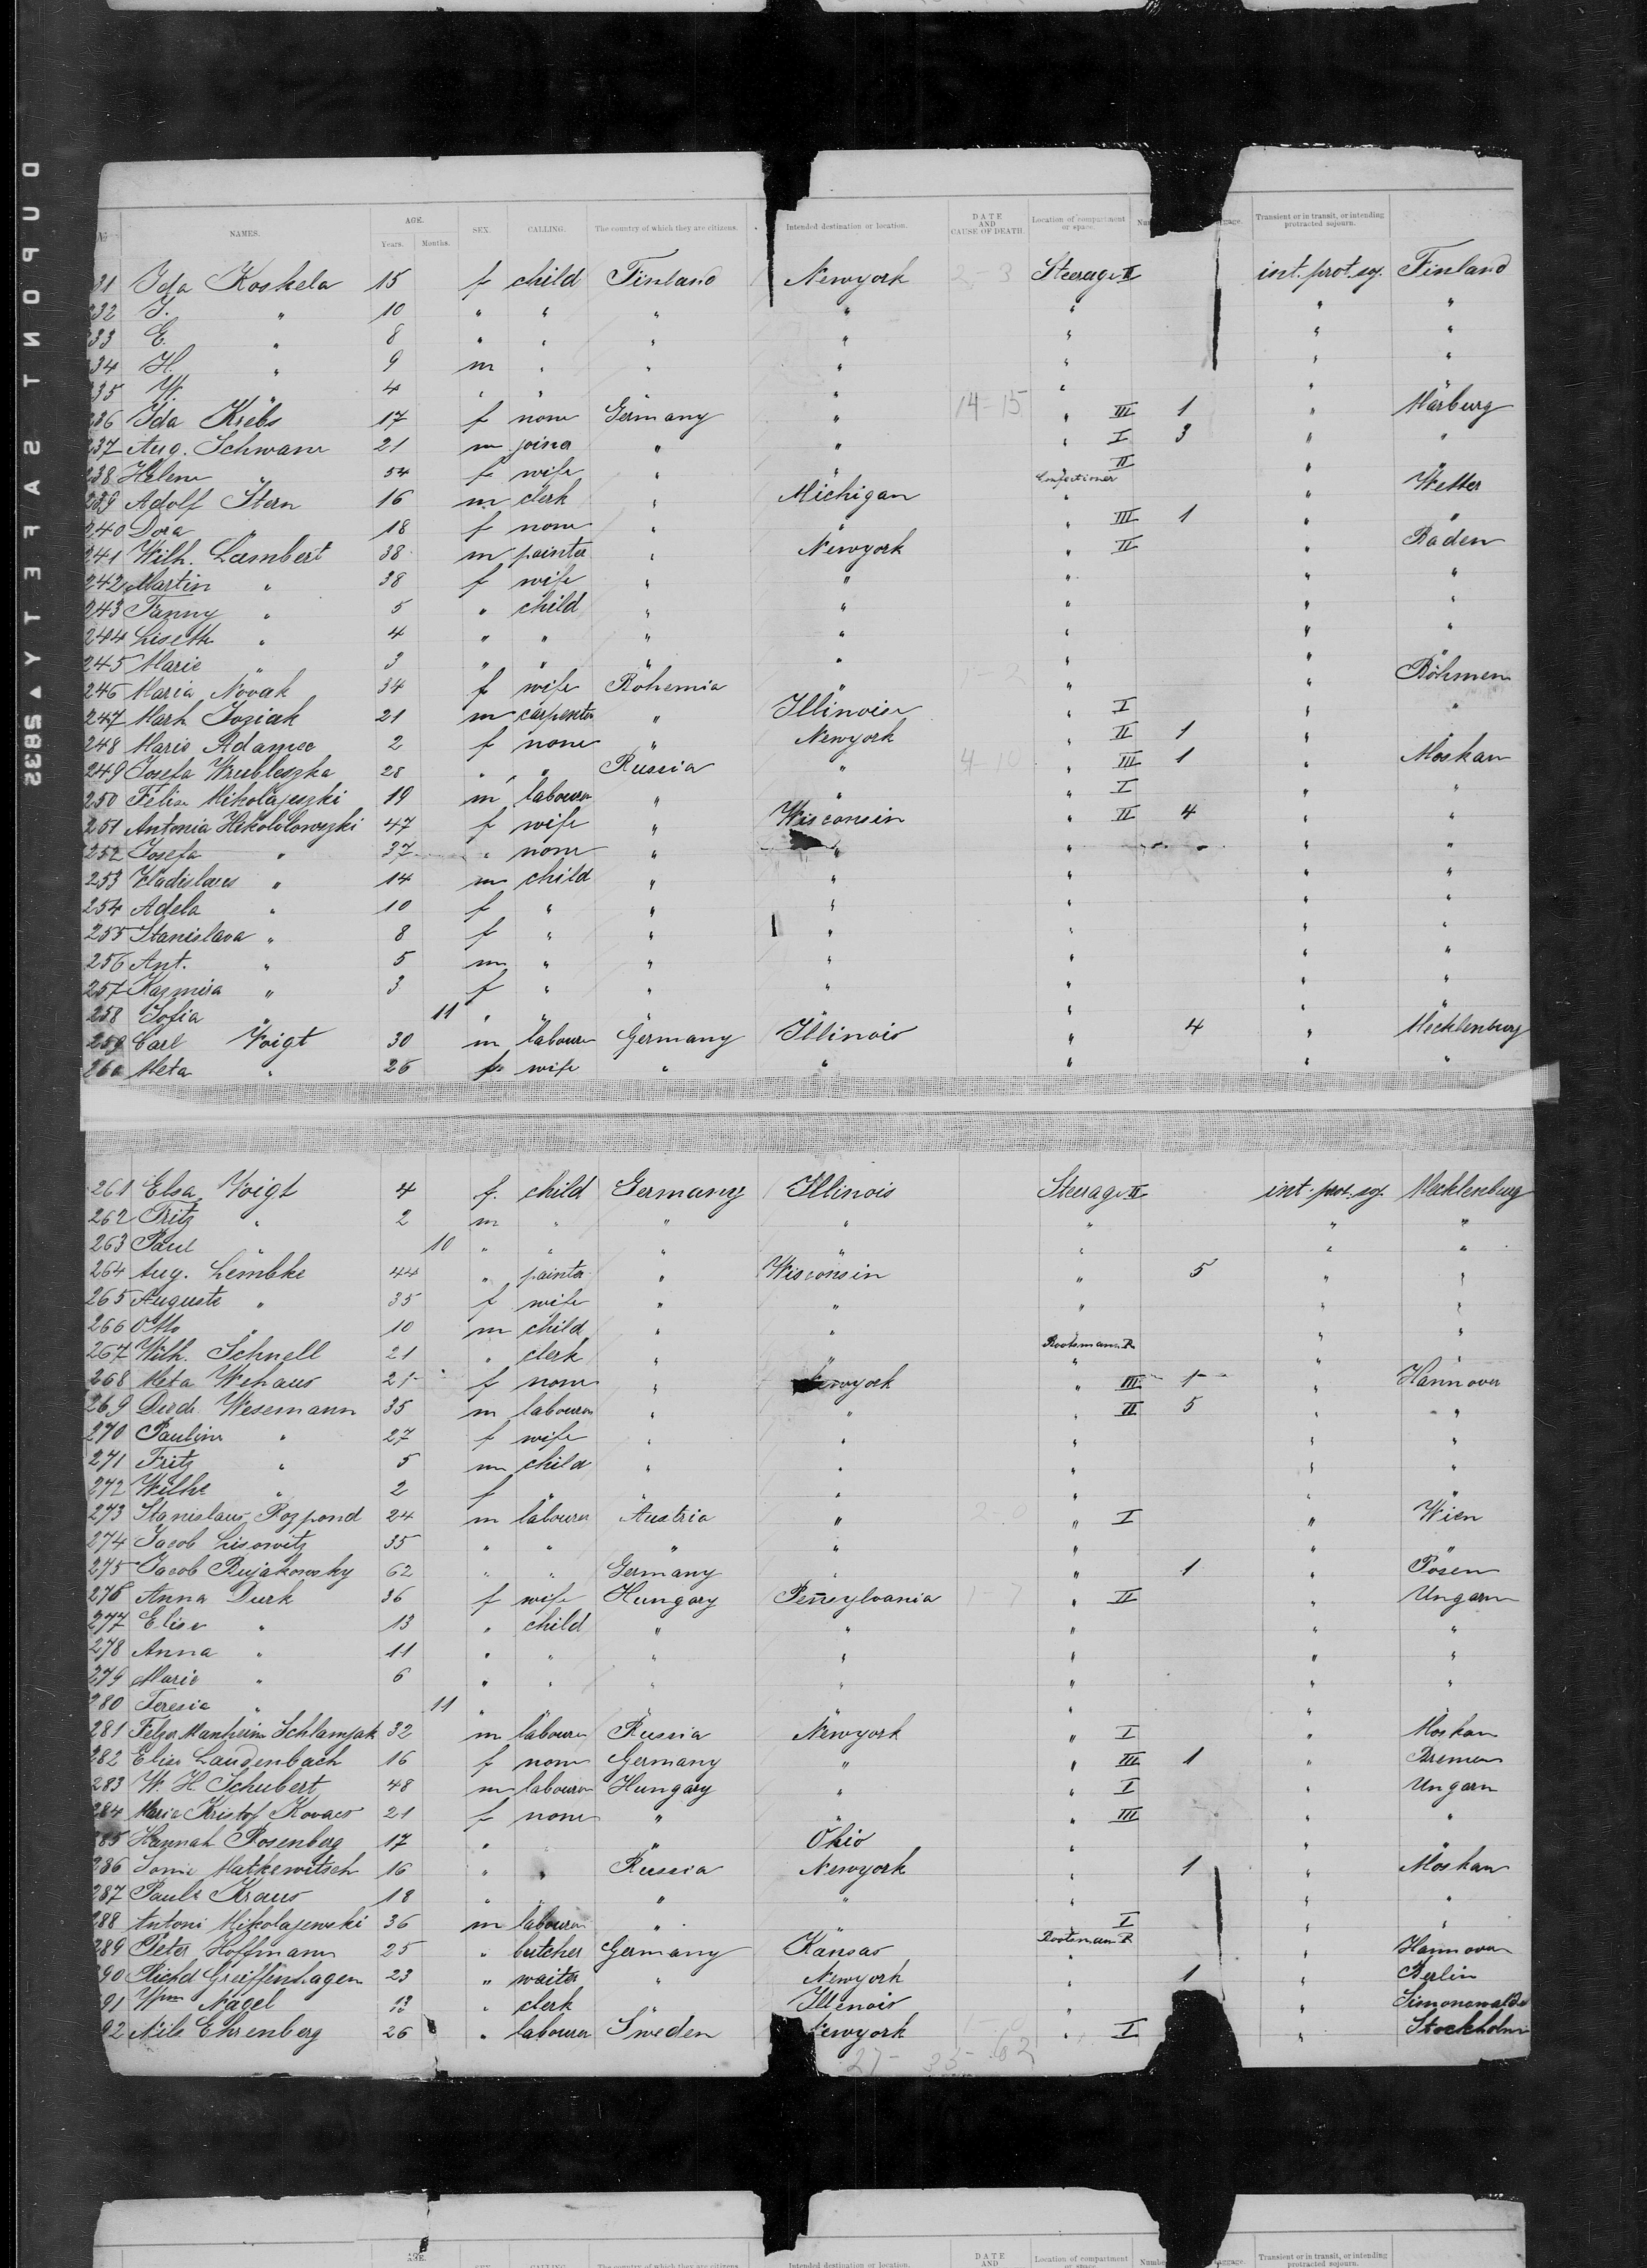 DUPONT SAFETY 2385
No. NAMES. AGE. Years. Months. SEX. CALLING. The country of which they are citizens. Intended destination or location. DATE AND CAUSE OF DEATH. Location of compartment or space. Transient or in transit, or intending protracted sojourn.
31 Ida Koskela 15 f child Finland Newyork 2-3 Steerage II int. prot. soj. Finland
232 " 10 " " " " " " "
33 E. " 8 " " " " " " "
34 H. " 9 m " " " " " "
235 W. " 4 " " " " " " "
236 Ida Krebs 17 f none Germany " 14-15 " III 1 " Marburg
237 Aug. Schwam 21 m joiner " " " I 3 " "
238 Helene " 54 f wife " " " II " "
239 Adolf Stern 16 m clerk " Michigan Confectioner " " Wetter
240 Dora " 18 f none " " " III 1 " "
241 Wilh. Lambert 38 m painter " Newyork " II " Baden
242 Martin " 38 f wife " " " " "
243 Fanny " 5 " child " " " " "
244 Liseth " 4 " " " " " " "
245 Marie " 3 " " " " " " "
246 Maria Novak 34 f wife Bohemia " 2 " " Böhmen
247 21 m carpenter " Illinois " I " "
248 Marie Adamec 2 f none " Newyork " II 1 " "
249 Josefa Wrubleszka 28 " " Russia " 4-10 " III 1 " Moskau
250 Felix Mikolajeszki 19 m labourer " " " I " "
251 Antonia 47 f wife " Wisconsin " II 4 " "
252 Josefa " 37 " none " " " " "
253 Vladislaus " 14 m child " " " " "
254 Adela " 10 f " " " " " "
255 Stanislava " 8 f " " " " " "
256 Ant. " 5 m " " " " " "
257 Kazmira " 3 f " " " " " "
258 Sofia " 11 " " " " " " "
259 Carl Voigt 30 m labourer Germany Illinois " 4 " Mecklenburg
260 Meta " 26 f wife " " " " "
261 Elsa Voigt 4 f. child Germany Illinois Steerage II int. prot. soj. Mecklenburg
262 Fritz " 2 m " " " " " "
263 Paul " 10 " " " " " " "
264 Aug. Lembke 44 " painter " Wisconsin " 5 " "
265 Auguste " 35 f wife " " " " "
266 Otto " 10 m child " " " " "
267 Wilh. Schnell 21 " clerk " " Bootsmann R " " "
268 Meta Wehaus 21 f none " Newyork " III 1 " Hannover
269 Diedr. Wesemann 35 m labourer " " " II 5 " "
270 Pauline " 27 f wife " " " " "
271 Fritz " 5 m child " " " " "
272 Wilhe " 2 f " " " " " "
273 Stanislaus Rozpond 24 m labourer Austria " 2-0 " I " Wien
274 Jacob Lisowitz 35 " " " " " " "
275 Jacob Bujakowsky 62 " " Germany " " 1 " Posen
276 Anna Durk 36 f wife Hungary Pennsylvania 1-7 " II " Ungarn
277 Elise " 13 " child " " " " "
278 Anna " 11 " " " " " " "
279 Marie " 6 " " " " " " "
280 Teresia " 11 " " " " " " "
281 Manheim Schlamjak 32 m labourer Russia Newyork " I " Moskau
282 Elise Laudenbach 16 f none Germany " " III 1 " Bremen
283 W. H. Schubert 48 m labourer Hungary " " I " Ungarn
284 Maria Kristof Kovacs 21 f none " " " III " "
285 Hannah Rosenberg 17 " " " Ohio " " "
286 Matkewitsch 16 " " Russia Newyork " 1 " Moskau
287 Paula Kraus 18 " " " " " " "
288 Antoni Mikolajewski 36 m labourer " " " I " "
289 Peter Hoffmann 25 " butcher Germany Kansas Bootsmann R " " Hannover
290 Richd Greiffenhagen 23 " waiter " Newyork " 1 " Berlin
91 Wm Nagel 13 " clerk " Illinois " " Simonswalde
92 Nils Ehrenberg 26 " labourer Sweden Newyork 1-0 " I " Stockholm
27- 35- 62
AGE. SEX. CALLING. The country of which they are citizens. Intended destination or location. DATE AND Location of compartment or space. Number Transient or in transit, or intending protracted sojourn.